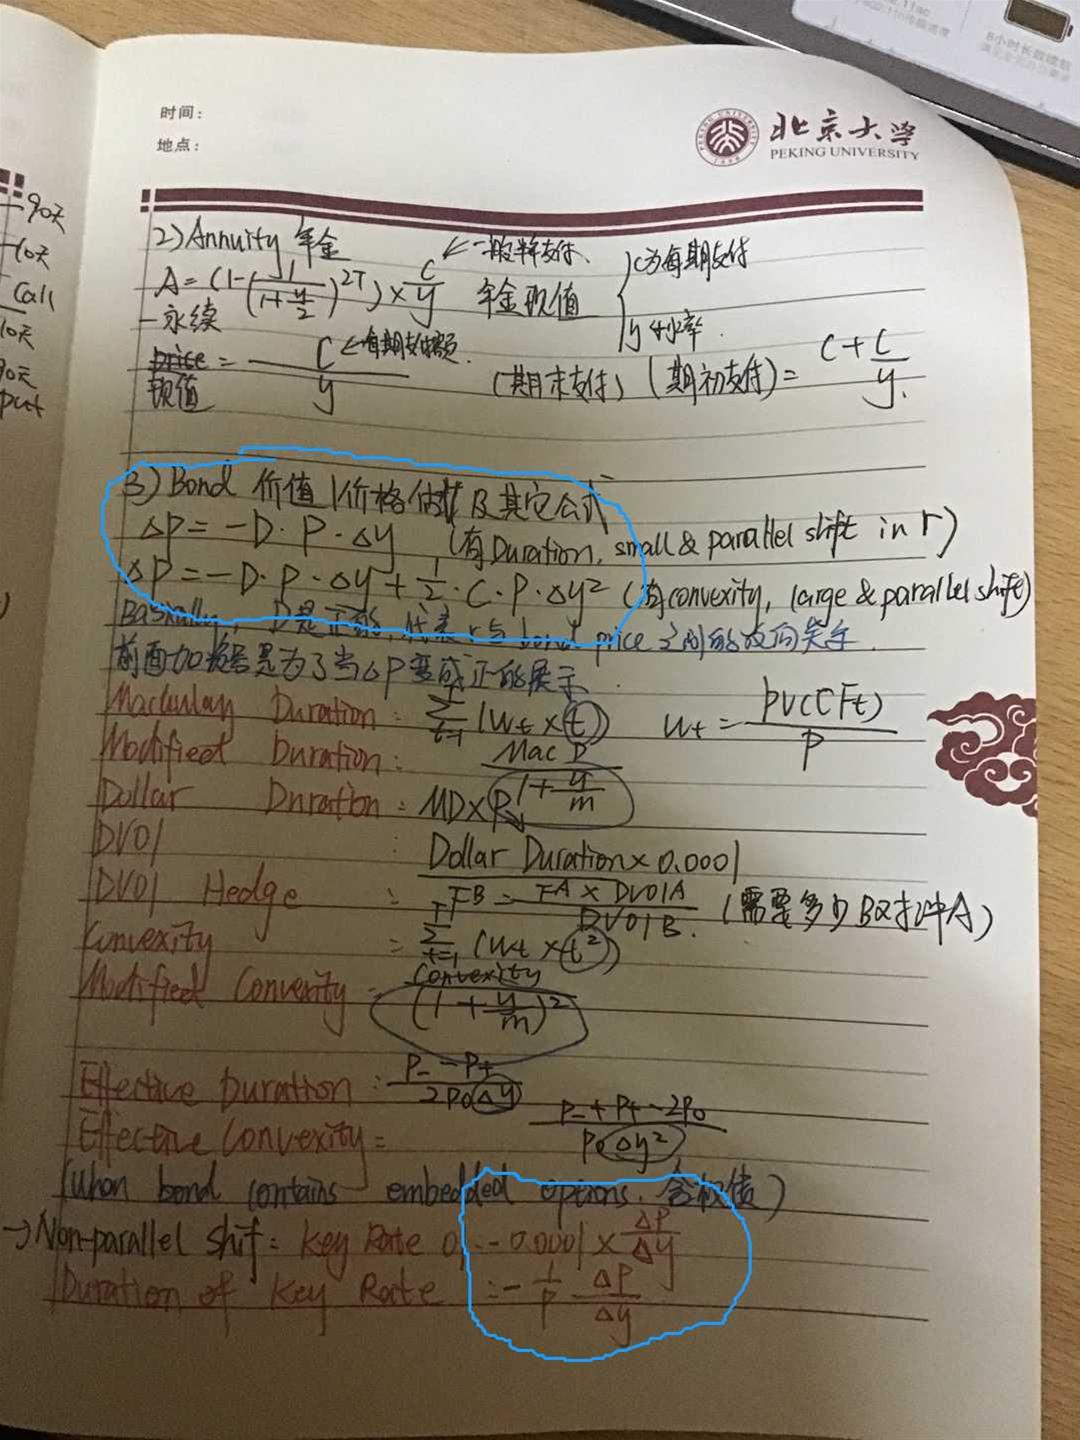 8小时长效续航
时间：
地点：
北京大学
PEKING UNIVERSITY
90天
10天
Call
10天
90天
put
2) Annuity 年金 ← 一般半年支付、
A = (1-(1/(1+y/2))^2T) × C/y 年金现值 { C为每期支付
y 利率.
- 永续
price = C/y ← 每期支付额. (期末支付) (期初支付) = C + C/y.
现值
3) Bond 价值/价格估算及其它公式
ΔP = -D·P·Δy (有Duration, small & parallel shift in r)
ΔP = -D·P·Δy + 1/2·C·P·Δy² (有convexity, large & parallel shift)
Basically, D是正的, 代表 r与 bond price 之间的反向关系
前面加负号是为了当ΔP变成正的展示.
Macaulay Duration: Σ t=1 T (Wt × t) Wt = PV(CFt)/P
Modified Duration: Mac D/(1+y/m)
Dollar Duration: MD×P
DV01 : Dollar Duration × 0.0001
DV01 Hedge : FB = FA × DV01A/DV01B. (需要多少B对冲A)
Convexity = Σ t=1 T (Wt × t²)
Modified Convexity = Convexity/(1+y/m)²
Effective Duration : P- - P+/2P0Δy
Effective Convexity = P- + P+ - 2P0/P0Δy²
(When bond contains embedded options, 含权债)
→ Non-parallel shif: Key Rate 01 - 0.0001 × ΔP/Δy
Duration of Key Rate := - 1/P ΔP/Δy